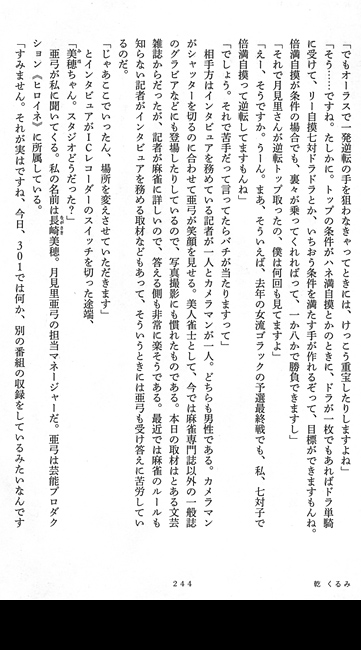 「でもオーラスで一発逆転の手を狙わなきゃってときには、けっこう重宝したりしますよね」
「そう……ですね。たしかに。トップの条件がハネ満自摸とかのときに、ドラが一枚でもあればドラ単騎
に受けて、リー自摸七対ドラドラとか、いちおう条件を満たす手が作れるぞって、目標ができますもんね。
倍満自摸が条件の場合でも、裏々が乗ってくれればって、一か八かで勝負できますし」
「それで月見里さんが逆転トップ取ったの、僕は何回も見てますよ」
「えー、そうですか。うーん。まあ、そういえば、去年の女流ゴラックの予選最終戦でも、私、七対子で
倍満自摸って逆転してますもんね」
「でしょう。それで苦手だって言ってたらバチが当たりますって」
相手方はインタビュアを務めている記者が一人とカメラマンが一人。どちらも男性である。カメラマン
がシャッターを切るのに合わせて亜弓が笑顔を見せる。美人雀士として、今では麻雀専門誌以外の一般誌
のグラビアなどにも登場したりしているので、写真撮影にも慣れたものである。本日の取材はとある文芸
雑誌からだったが、記者が麻雀に詳しいので、答える側も非常に楽そうである。最近では麻雀のルールも
知らない記者がインタビュアを務める取材などもあって、そういうときには亜弓も受け答えに苦労してい
るのだ。
「じゃあここでいったん、場所を変えさせていただきます」
とインタビュアがＩＣレコーダーのスイッチを切った途端、
「美穂ちゃん。スタジオどうだった？」
亜弓が私に聞いてくる。私の名前は長崎美穂。月見里亜弓の担当マネージャーだ。亜弓は芸能プロダク
ション《ヒロイネ》に所属している。
「すみません。それが実はですね、今日、３０１では何か、別の番組の収録をしているみたいなんです
244
乾 くるみ